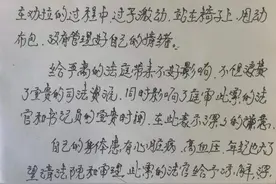 在劝拉的过程中过于激动,站在椅子上,甩动
布包,没有管理好自己的情绪。
给严肃的法庭带来不好影响,不但浪费
了宝贵的司法资源,同时影响了庭审此案的法
官和书记员的宝贵时间,在此表示深深的歉意。
自己的身体患有心脏病、高血压,年纪也大了
望请法院和审理此案的法官给予谅解,